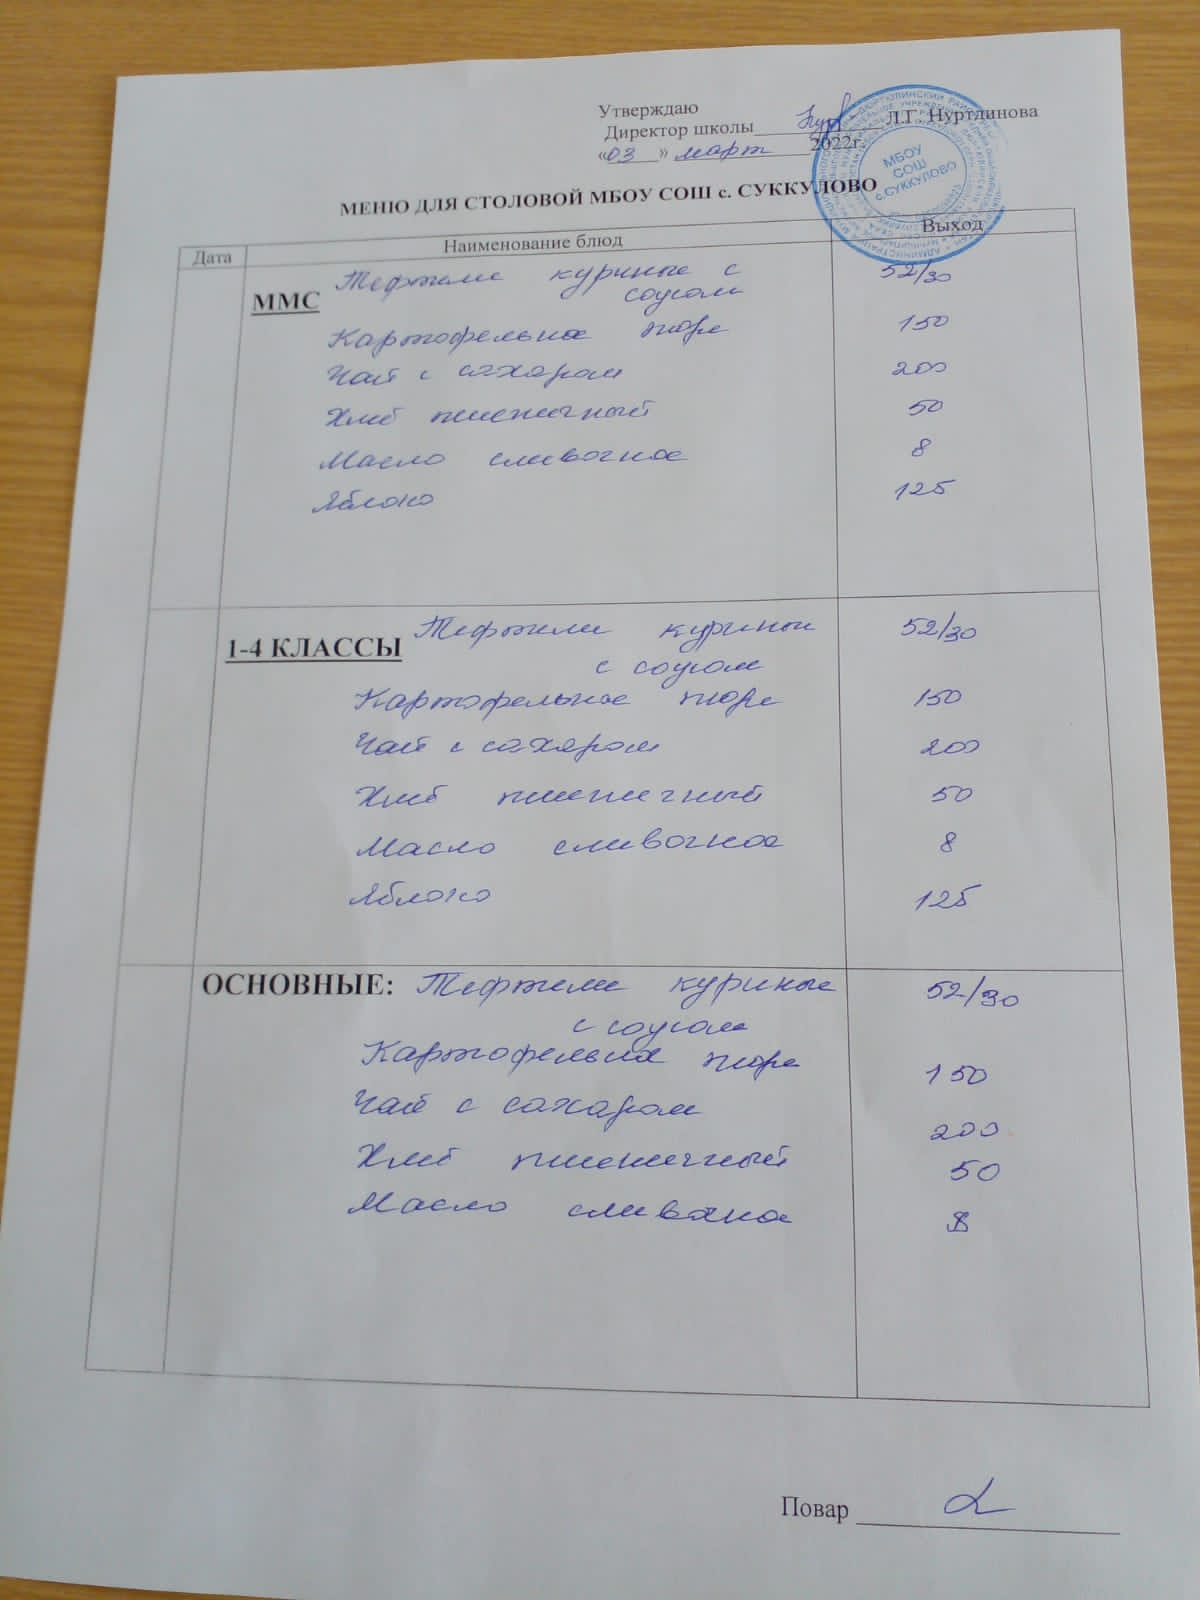 Утверждаю
Директор школы Л.Г. Нуртдинова
«03» март 2022г.
МБОУ
СОШ
с.СУККУЛОВО
МЕНЮ ДЛЯ СТОЛОВОЙ МБОУ СОШ с. СУККУЛОВО
Дата Наименование блюд Выход
ММС Тефтели куриные с 52/30
соусом
Картофельное пюре 150
Чай с сахаром 200
Хлеб пшеничный 50
Масло сливочное 8
Яблоко 125
1-4 КЛАССЫ Тефтели куриные 52/30
с соусом
Картофельное пюре 150
Чай с сахаром 200
Хлеб пшеничный 50
Масло сливочное 8
Яблоко 125
ОСНОВНЫЕ: Тефтели куриные 52/30
с соусом
Картофельное пюре 150
Чай с сахаром 200
Хлеб пшеничный 50
Масло сливочное 8
Повар